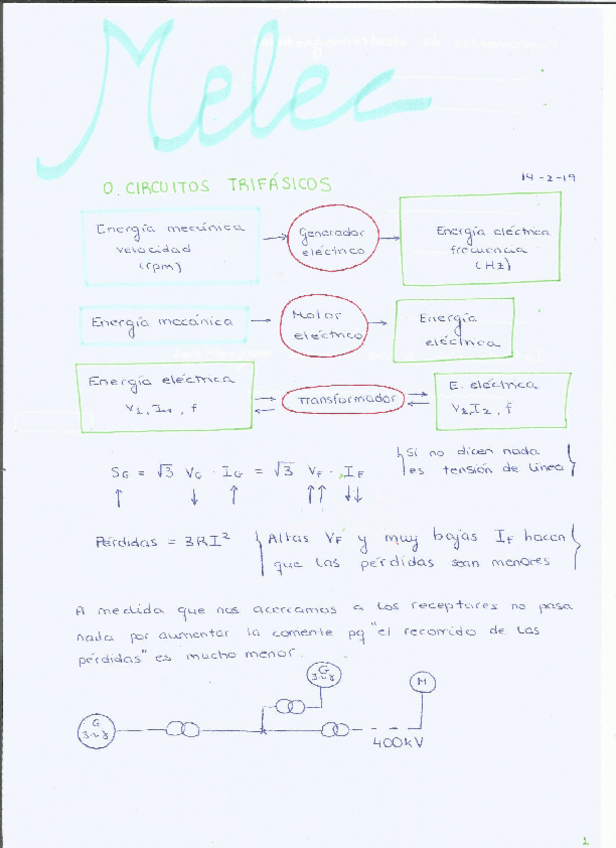 Melec
14-2-19
0. CIRCUITOS TRIFÁSICOS
Energía mecánica
velocidad
(rpm)
Generador
eléctrico
Energía eléctrica
frecuencia
(Hz)
Energía mecánica
Motor
eléctrico
Energía
eléctrica
Energía eléctrica
V1, I1, f
Transformador
E. eléctrica
V2, I2, f
SG = √3 VG · IG = √3 VF · IF
Si no dicen nada
es tensión de línea
↑ ↓ ↑ ↑↑ ↓↓
Pérdidas = 3RI²
Altas VF y muy bajas IF hacen
que las pérdidas sean menores
A medida que nos acercamos a los receptores no pasa
nada por aumentar la corriente pq "el recorrido de las
pérdidas" es mucho menor.
G
3~
M
G
3~
400kV
1